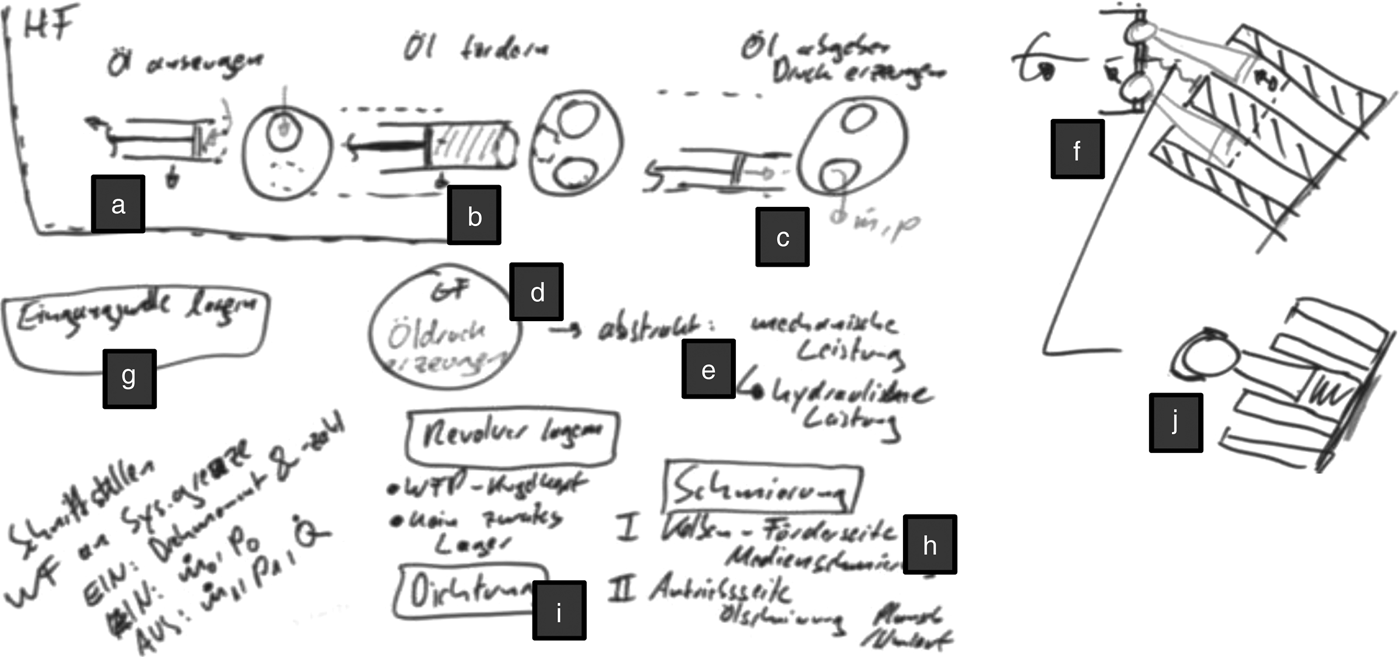 HF
Öl ansaugen
Öl fördern
Öl abgeben
Druck erzeugen
a
b
c
ṁ, p
f
d
GF
Öldruck
erzeugen
→ abstrakt: mechanische
Leistung
e
↳ hydraulische
Leistung
Eingangswelle lagern
g
j
Revolver lagern
• WFP-
• kein zweites
Lager
Dichtung
i
Schmierung
I Kolben - Förderseite
h
II Antriebsseite
Ölschmierung
Schnittstellen
WF an Sys.grenze
EIN: Drehmoment & -zahl
EIN: ṁ₀, P₀
AUS: ṁ₁, P₁, Q̇